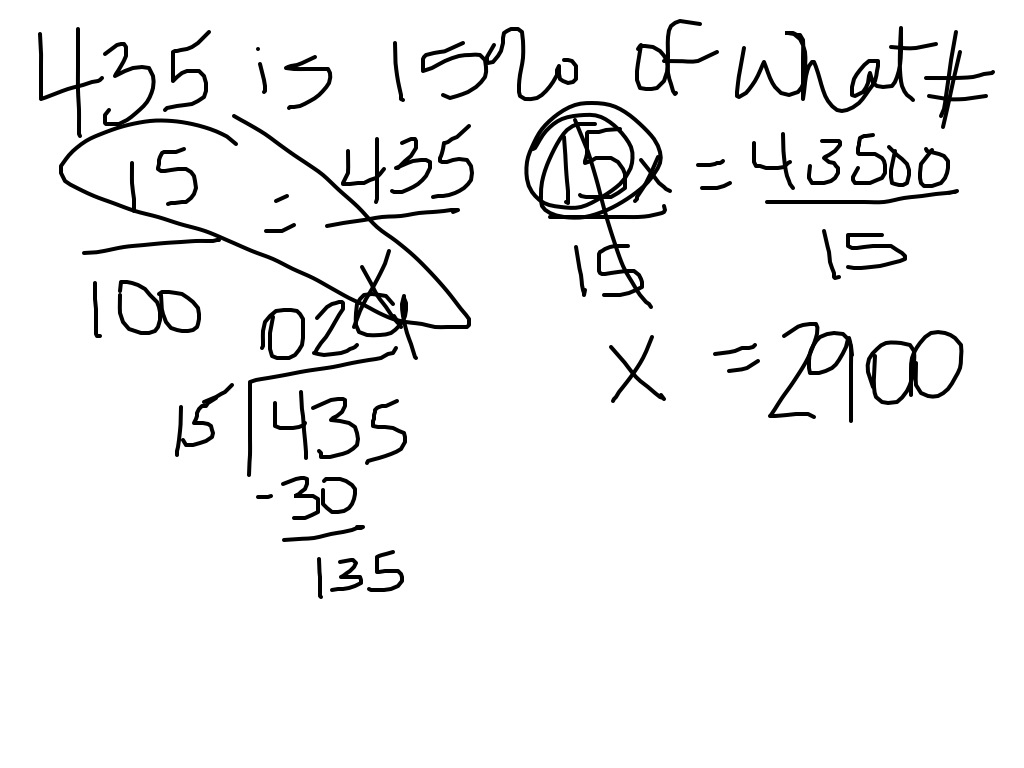 435 is 15% of what #
15 = 435
100 x
15x = 43500
15 15
x = 2900
029
15 435
-30
135